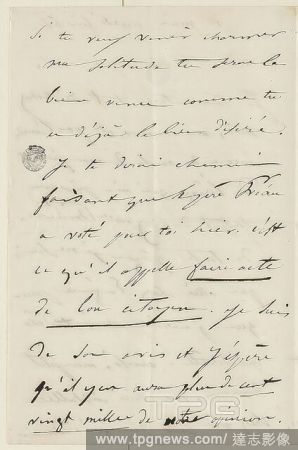 Si tu veux venir charmer
ma solitude tu seras la
bien venue comme tu
es déjà la bien désirée.
Je te dirai chemin
faisant que le père
a voté pour toi hier. c'est
ce qu'il appelle faire acte
de bon citoyen. Je suis
de son avis et j'espère
qu'il y en aura plus de cent
vingt mille de notre opinion.
TPG
www.tpgnews.com / 達志影像